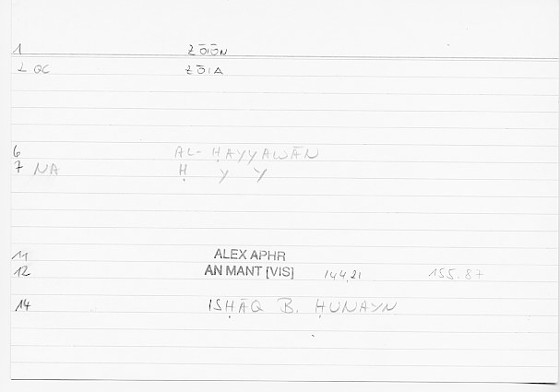 1 ZŌIŌN
2 GC ZŌIA
6 AL- ḤAYYAWĀN
7 NA Ḥ Y Y
11 ALEX APHR
12 AN MANT [VIS] 144,21 155.87
14 ISḤĀQ B. ḤUNAYN